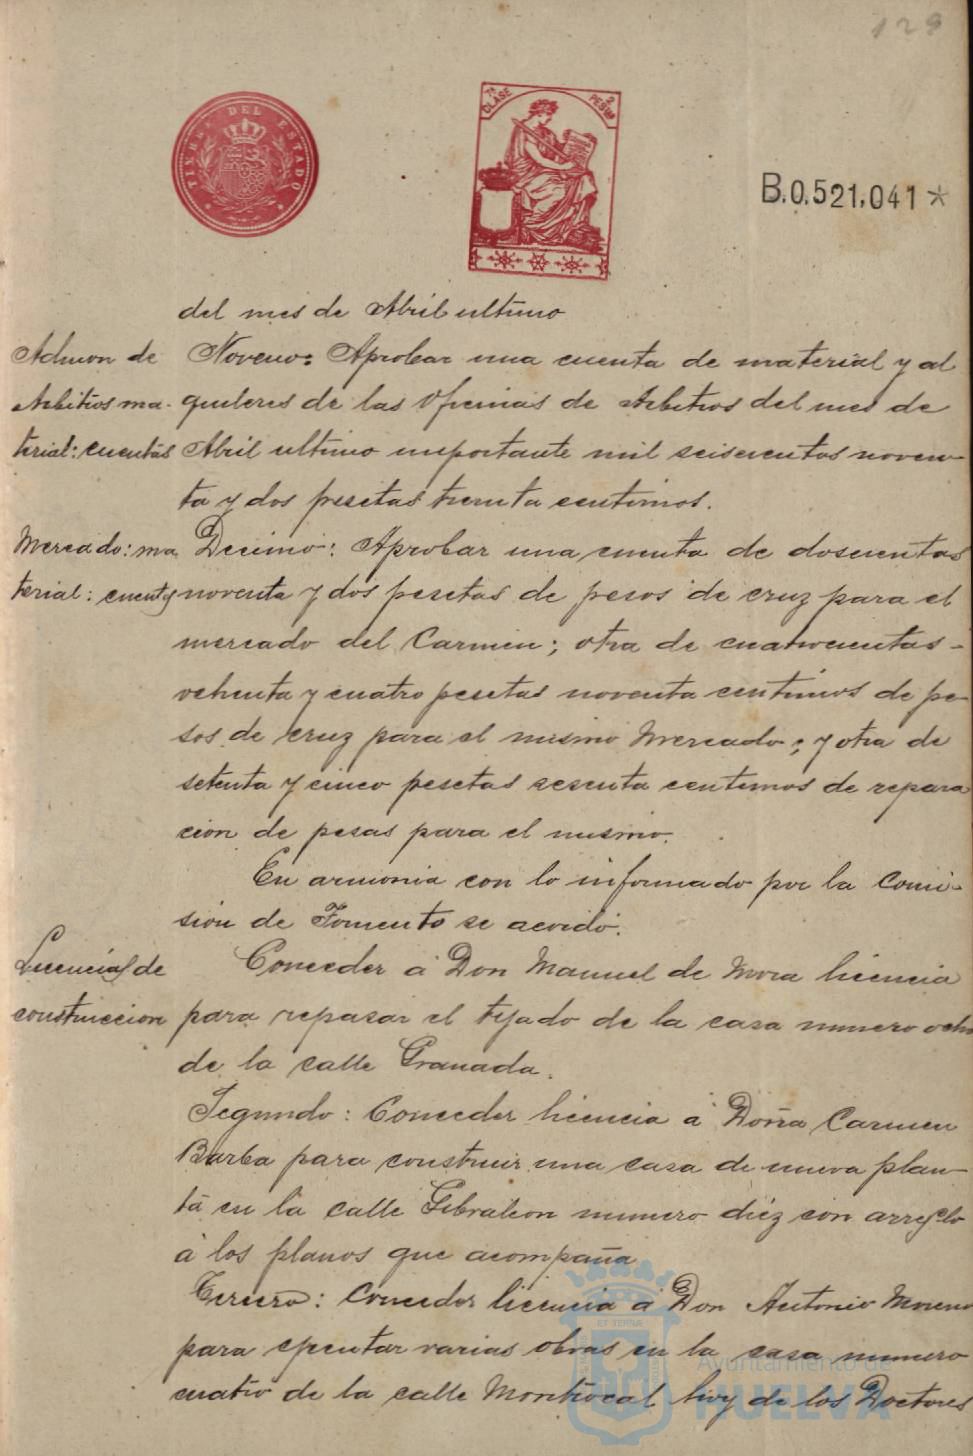 129
TIMBRE DEL ESTADO
7ª CLASE
2 PESETAS
B.0.521,041*
del mes de Abril ultimo
Admon de
Arbitrios ma-
terial: cuentas
Noveno: Aprobar una cuenta de material y al
quileres de las Oficinas de Arbitrios del mes de
Abril ultimo importante mil seiscientas noven-
ta y dos pesetas treinta centimos.
Mercado: ma
terial: cuentas
Decimo: Aprobar una cuenta de doscientas
noventa y dos pesetas de pesos de cruz para el
mercado del Carmen; otra de cuatrocientas-
ochenta y cuatro pesetas noventa centimos de pe-
sos de cruz para el mismo Mercado; y otra de
setenta y cinco pesetas sesenta centimos de repara
cion de pesas para el mismo.
En armonia con lo informado por la Comi-
sion de Fomento se acordó.
Licencias de
construccion
Conceder á Don Manuel de Mora licencia
para repasar el tejado de la casa numero ocho
de la calle Granada.
Segundo: Conceder licencia á Doña Carmen
Barba para construir una casa de nueva plan-
ta en la calle Gibraleon numero diez con arreglo
á los planos que acompaña
Tercero: Conceder licencia á Don Antonio Moreno
para ejecutar varias obras en la casa numero
cuatro de la calle Montrocal hoy de los Doctores
Ayuntamiento de
HUELVA